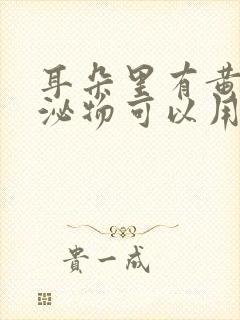 耳朵里有黄
泌物可以用
贵一成